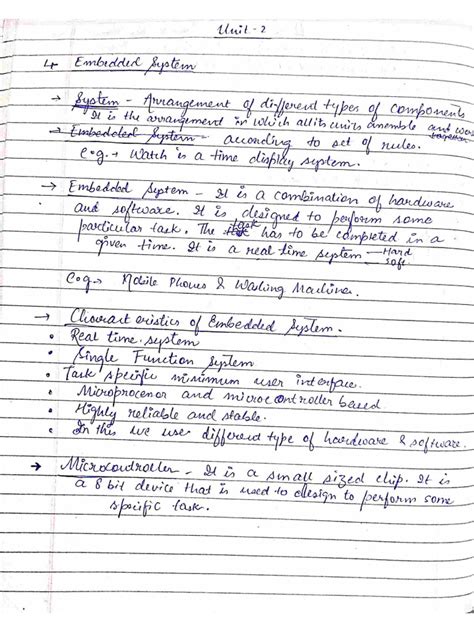 Unit - 2
4 Embedded System
→ System - Arrangement of different types of components
It is the arrangement in which all its units assemble and work together
→ Embedded System - according to set of rules.
e.g. → Watch is a time display system.
→ Embedded System - It is a combination of hardware
and software. It is designed to perform some
particular task. The task has to be completed in a
given time. It is a real time system Hard
soft.
e.g → Mobile Phones & Washing Machine.
→ Charact eristics of Embedded System.
• Real time system
• Single Function System
• Task specific minimum user interface.
• Microprocessor and microcontroller based.
• Highly reliable and stable.
• In this we use different type of hardware & software.
→ Microcontroller - It is a small sized chip. It is
a 8 bit device that is used to design to perform some
specific task.